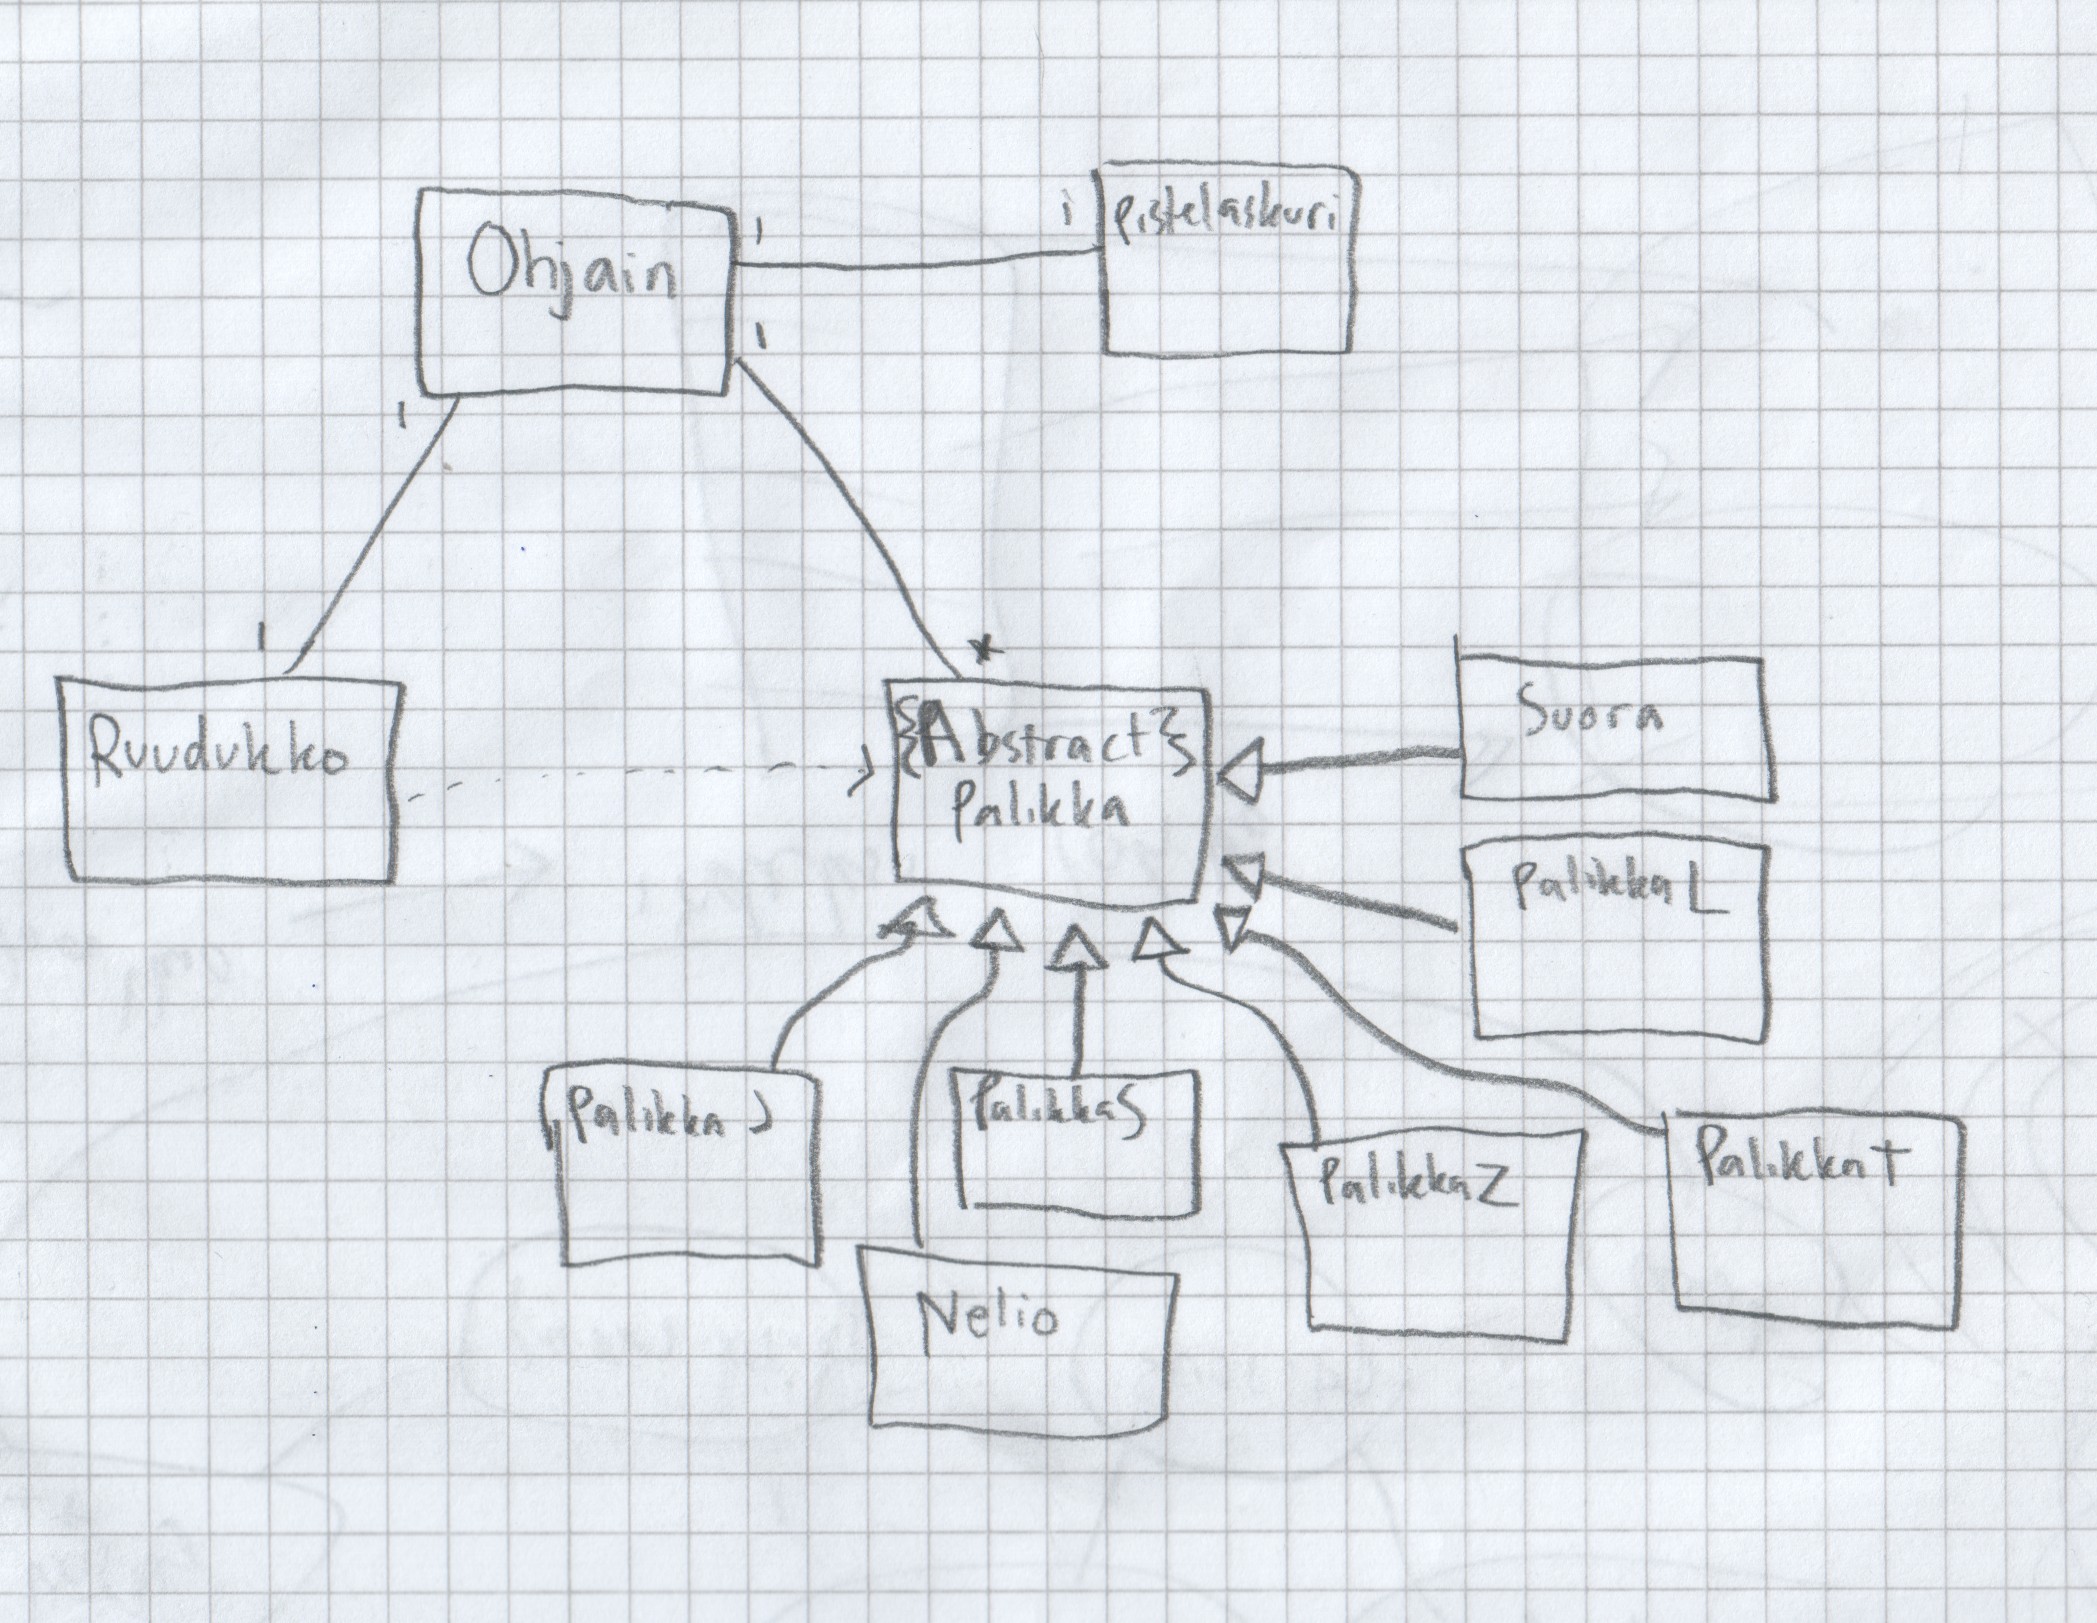 Ohjain
1
1
Pistelaskuri
1
1
1
*
Ruudukko
{Abstract}
Palikka
Suora
Palikka L
Palikka J
PalikkaS
PalikkaZ
PalikkaT
Nelio